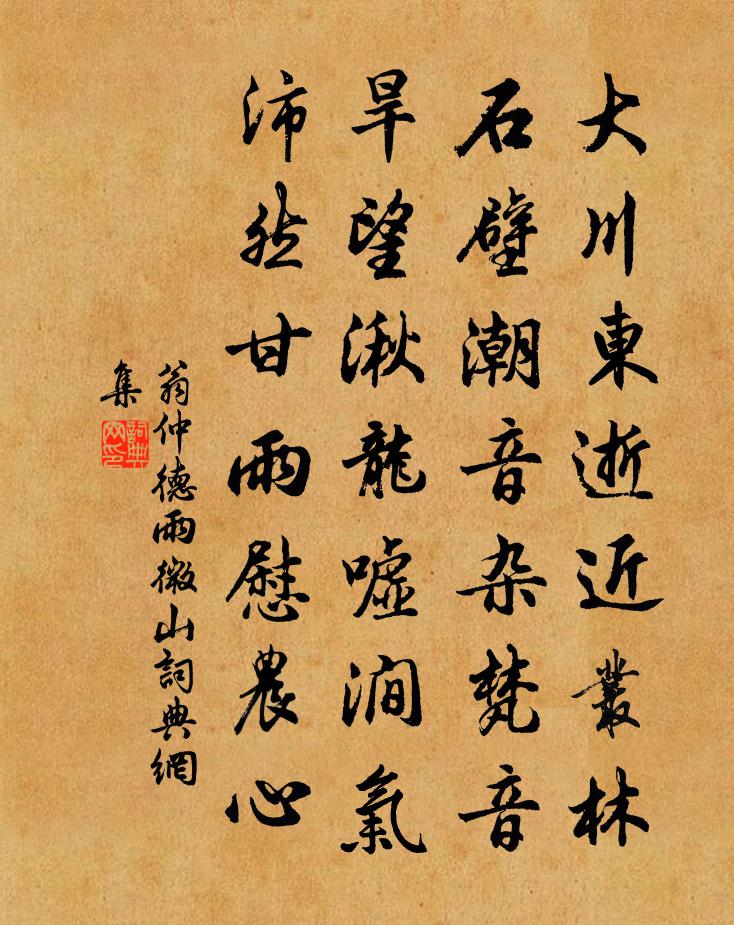 大川東逝近叢林
石壁潮音杂梵音
旱望湫龍嘘澗氣
沛然甘雨慰農心
翁仲德雨微山詞典網
集
詞典
网印